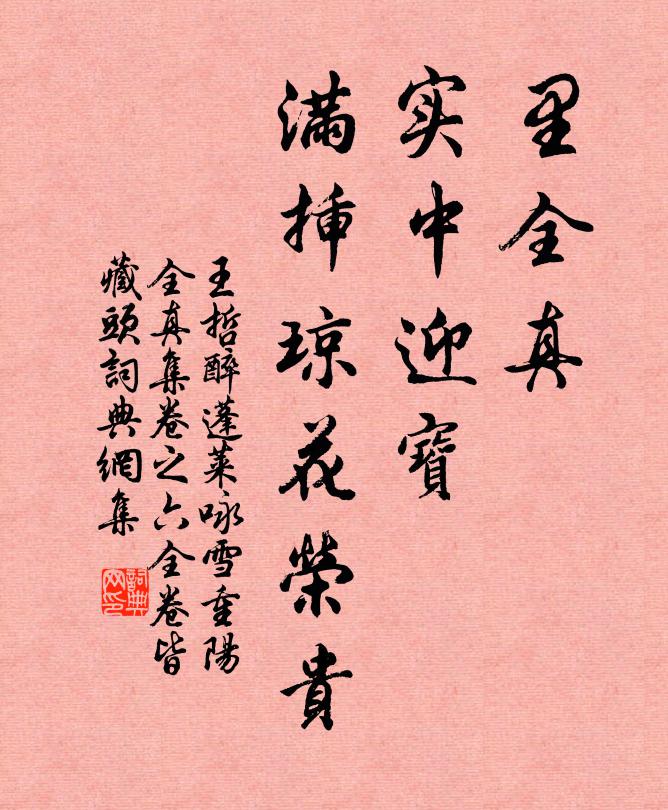 里全真
实中迎寶
满插琼花榮貴
王哲醉蓬莱咏雪重陽
全真集卷之六全卷皆
藏頭詞典網集
詞典网印